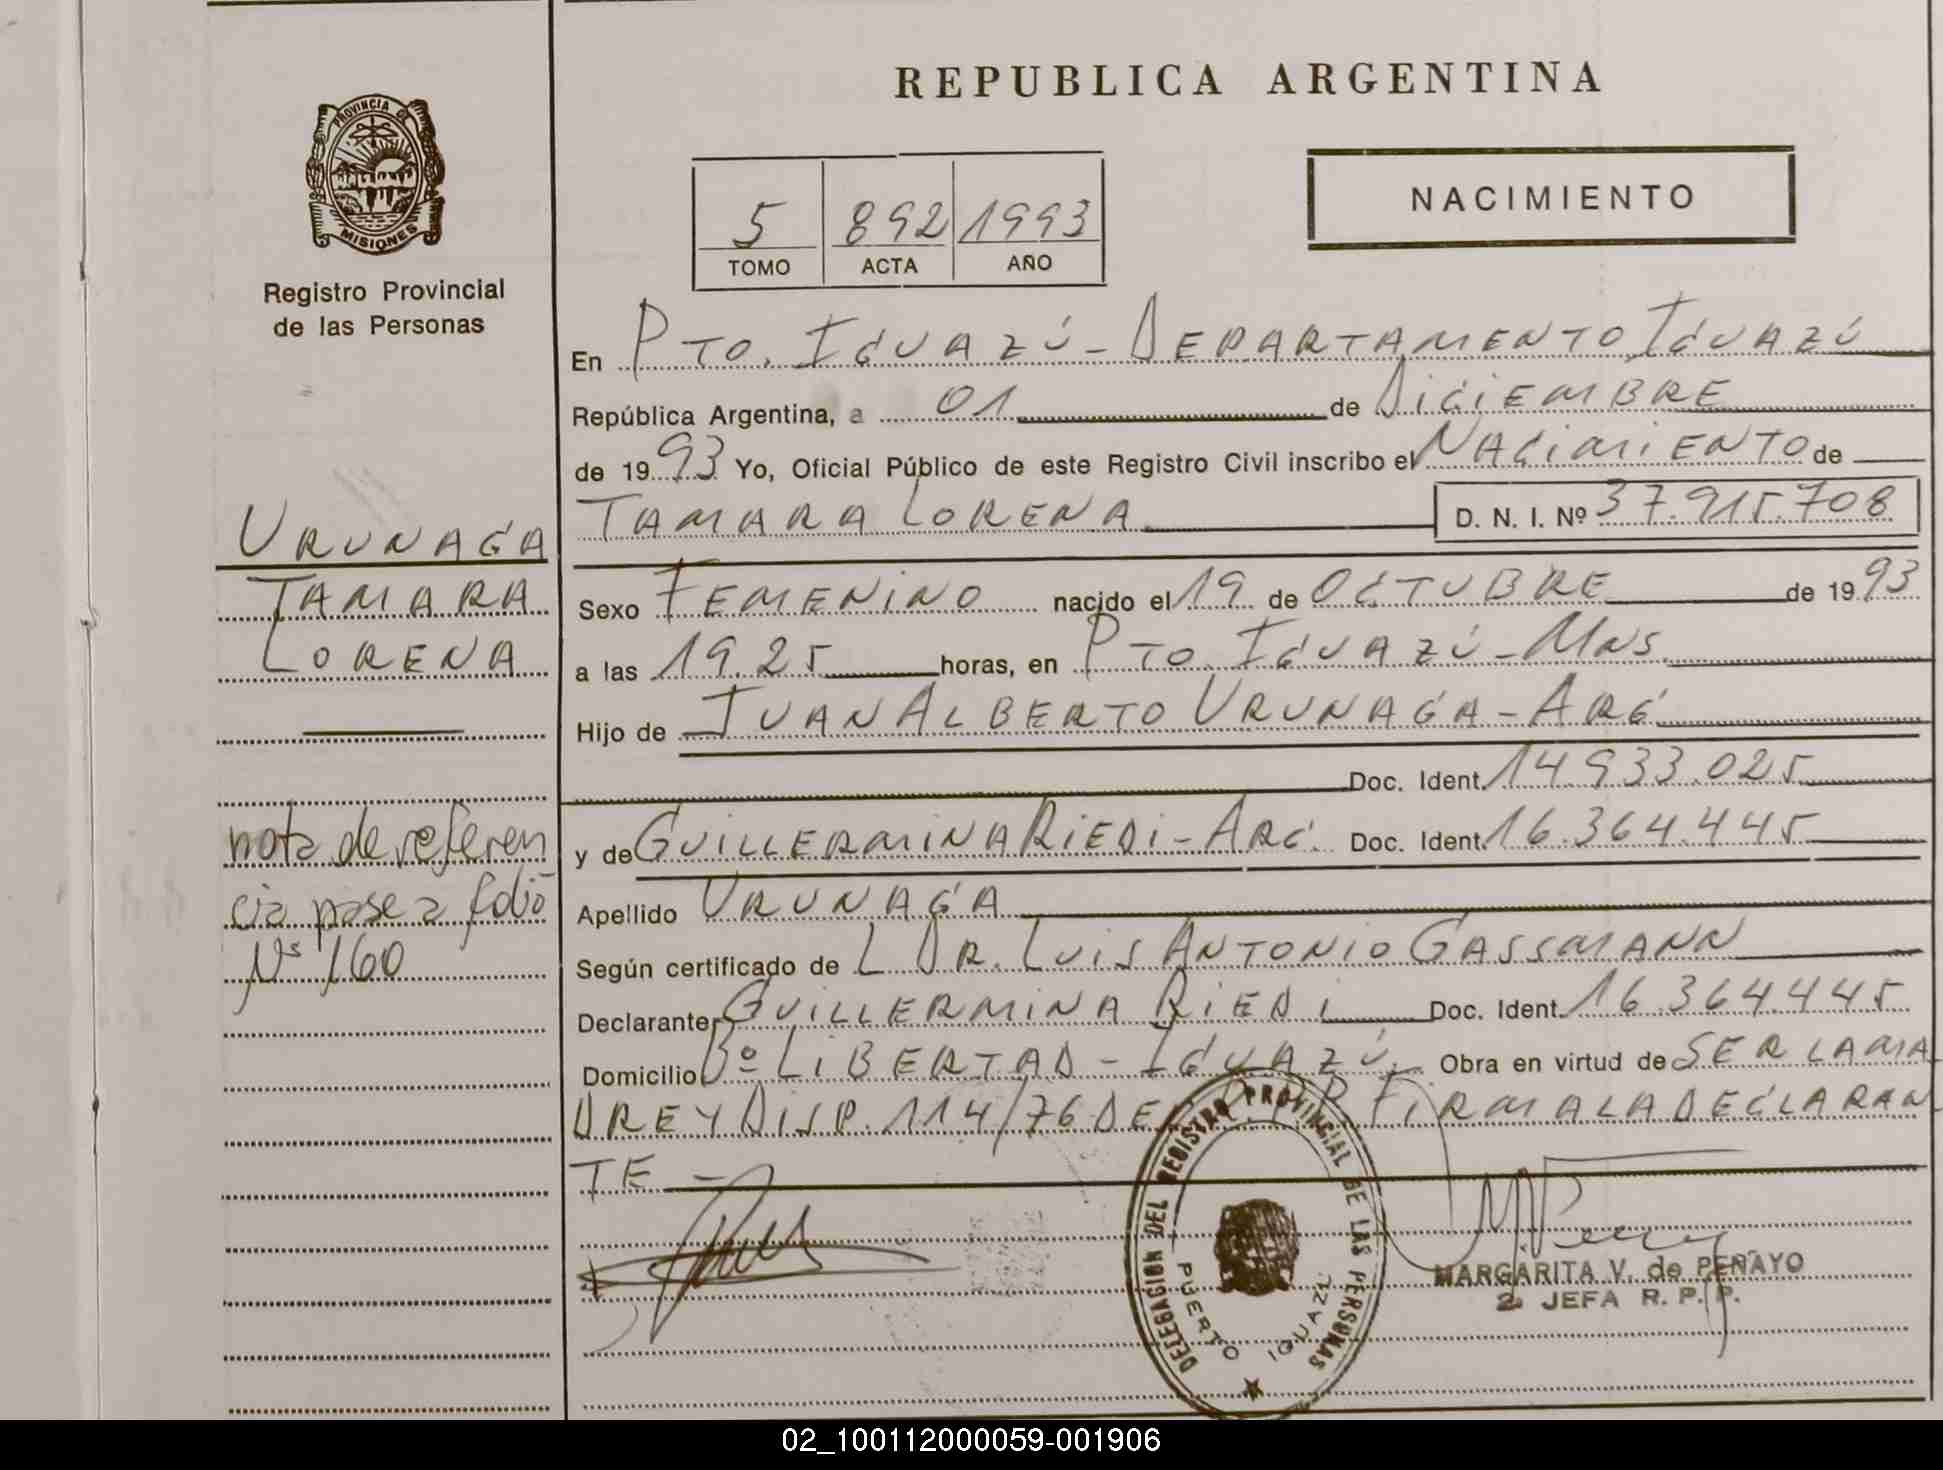 PROVINCIA DE
MISIONES
Registro Provincial
de las Personas
URUNAGA
TAMARA
LORENA
nota de referen
cia pase a folio
Nº 160
REPUBLICA ARGENTINA
NACIMIENTO
5 892 1993
TOMO ACTA AÑO
En PTO. IGUAZÚ - DEPARTAMENTO IGUAZÚ
República Argentina, a 01 de DICIEMBRE
de 1993 Yo, Oficial Público de este Registro Civil inscribo el NACIMIENTO de
TAMARA LORENA D. N. I. Nº 37.915.708
Sexo FEMENINO nacido el 19 de OCTUBRE de 1993
a las 19.25 horas, en PTO. IGUAZÚ - MNS.
Hijo de JUAN ALBERTO URUNAGA - ARG
Doc. Ident. 14.933.025
y de GUILLERMINA RIEDI - ARG. Doc. Ident. 16.364.445
Apellido URUNAGA
Según certificado de L DR. LUIS ANTONIO GASSMANN
Declarante GUILLERMINA RIEDI Doc. Ident. 16.364.445
Domicilio Bº LIBERTAD - IGUAZÚ. Obra en virtud de SER LA MA
DRE Y DISP. 114/76 DE FIRMA LA DECLARAN
TE -
DELEGACION DEL REGISTRO PROVINCIAL DE LAS PERSONAS
PUERTO IGUAZU
MARGARITA V. de PEÑAYO
2º JEFA R. P. P.
02_100112000059-001906